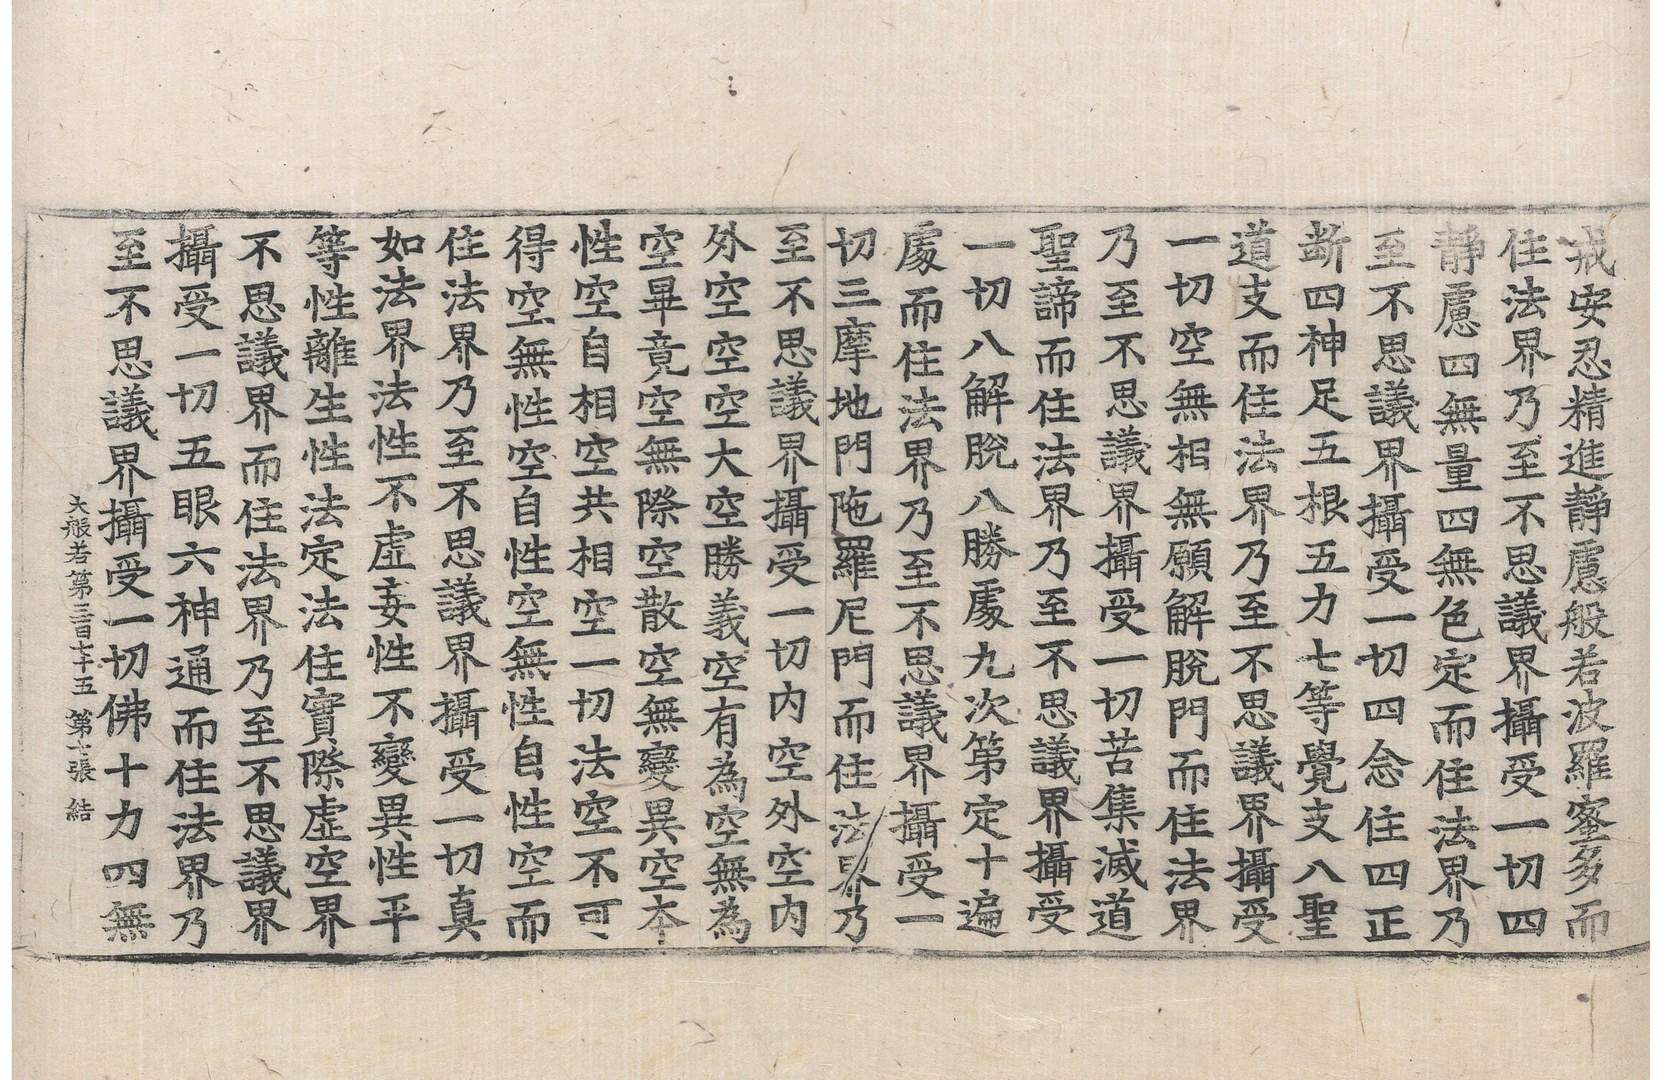 戒安忍精進靜慮般若波羅蜜多而
住法界乃至不思議界攝受一切四
靜慮四無量四無色定而住法界乃
至不思議界攝受一切四念住四正
斷四神足五根五力七等覺支八聖
道支而住法界乃至不思議界攝受
一切空無相無願解脫門而住法界
乃至不思議界攝受一切苦集滅道
聖諦而住法界乃至不思議界攝受
一切八解脫八勝處九次第定十遍
處而住法界乃至不思議界攝受一
切三摩地門陁羅尼門而住法界乃
至不思議界攝受一切內空外空內
外空空空大空勝義空有為空無為
空畢竟空無際空散空無變異空本
性空自相空共相空一切法空不可
得空無性空自性空無性自性空而
住法界乃至不思議界攝受一切真
如法界法性不虛妄性不變異性平
等性離生性法定法住實際虛空界
不思議界而住法界乃至不思議界
攝受一切五眼六神通而住法界乃
至不思議界攝受一切佛十力四無
大般若第三百七十五 第七張 結